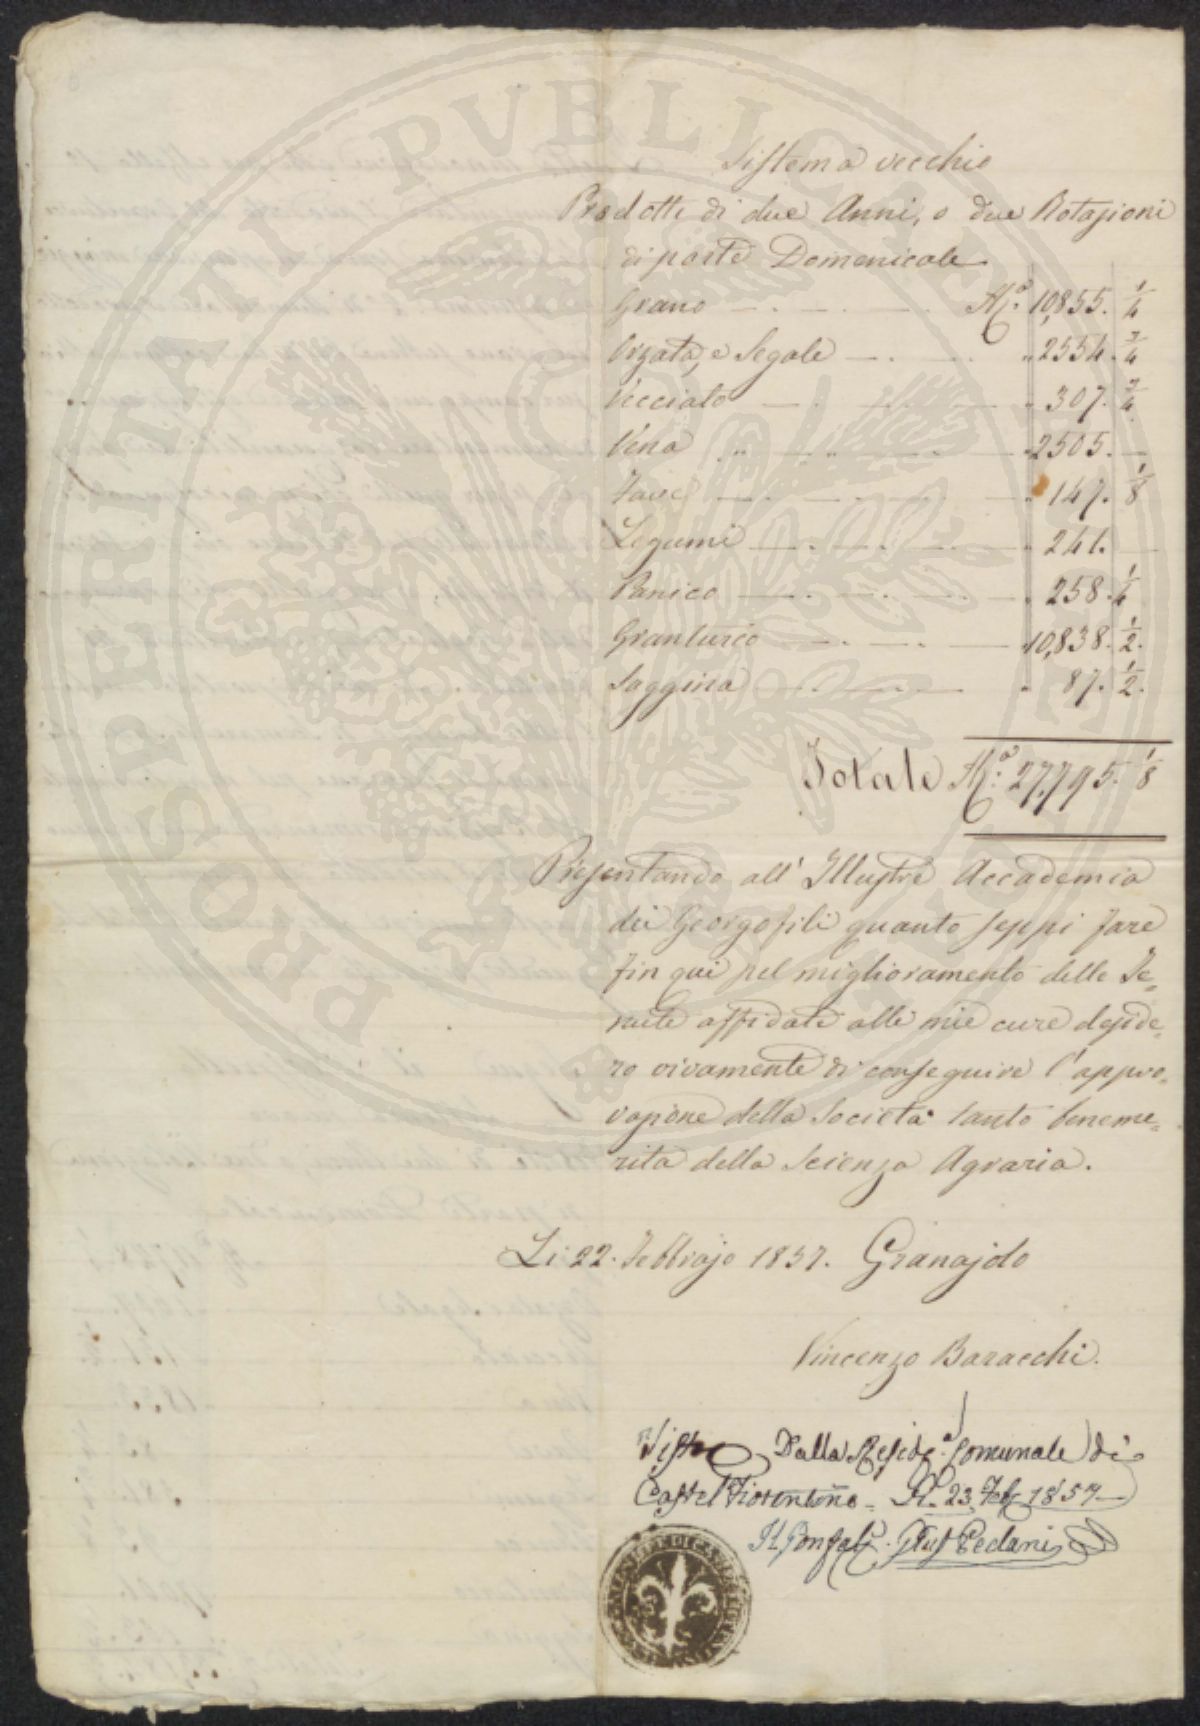 Sistema vecchio
Prodotti di due Anni, o due Rotazioni
di parte Domenicale
Grano 10,855. 1/4
Orzata, e Segale " 2554. 3/4
Vecciato " 307. 3/4
Vena " 2505.
Fave " 147. 1/8
Legumi " 241.
Panico " 258. 1/4
Granturco " 10,838. 1/2.
Saggina " 87. 1/2.
Totale 27,795. 1/8
Presentando all' Illustre Accademia
dei Georgofili quanto seppi fare
fin qui pel miglioramento delle Te=
nute affidate alle mie cure deside=
ro vivamente di conseguire l'appro=
vazione della Società tanto beneme=
rita della Scienza Agraria.
Li 22. Febbrajo 1857. Granajolo
Vincenzo Baracchi.
Visto Dalla Reside.a Comunale di
Castel Fiorentino - Li 23 Feb. 1857
Il Gonfal.re Pedani
PROSPERITATI PUBLICAE